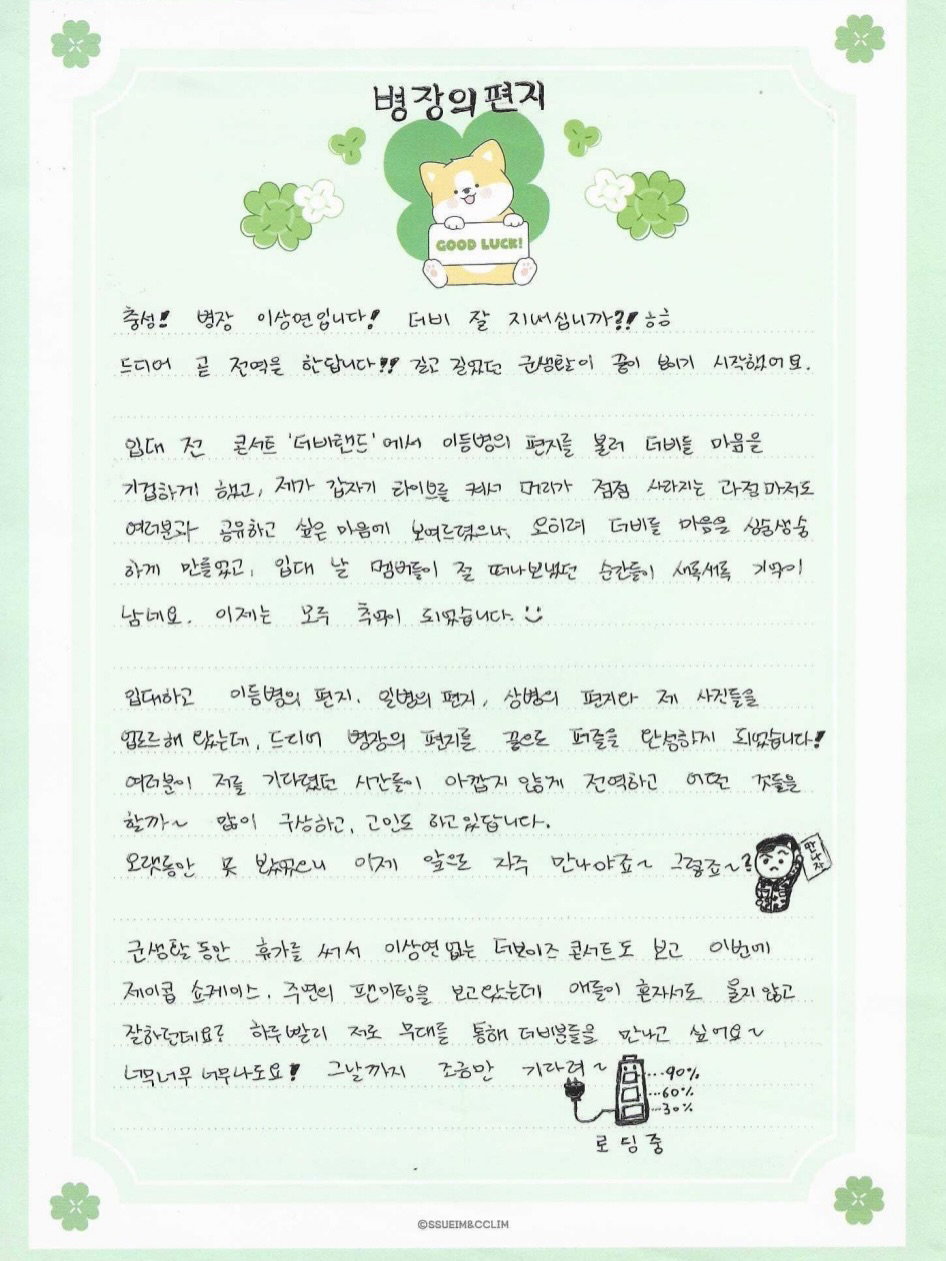 병장의 편지
GOOD LUCK!
충성!! 병장 이상연입니다! 더비 잘 지내십니까?! ㅎㅎ
드디어 곧 전역을 한답니다!! 길고 길었던 군생활이 끝이 보이기 시작했어요.
입대 전 콘서트 '더비랜드'에서 이등병의 편지를 불러 더비들 마음을
무겁하게 했고, 제가 갑자기 라이브를 켜서 머리가 점점 사라지는 과정마저도
여러분과 공유하고 싶은 마음에 보여드렸으나, 오히려 더비들 마음을 싱숭생숭
하게 만들었고, 입대 날 멤버들이 절 떠나보냈던 순간들이 새록새록 기억이
남네요. 이제는 모두 추억이 되었습니다.
입대하고 이등병의 편지, 일병의 편지, 상병의 편지와 제 사진들을
업로드해 왔는데, 드디어 병장의 편지를 끝으로 퍼즐을 완성하게 되었습니다!
여러분이 저를 기다렸던 시간들이 아깝지 않게 전역하고 어떤 것들을
할까~ 많이 구상하고, 고민도 하고 있답니다.
오랫동안 못 봤었으니 이제 앞으로 자주 만나야죠~ 그렇죠~?
만나자
군생활 동안 휴가를 써서 이상연 없는 더보이즈 콘서트도 보고 이번에
제이콥 쇼케이스, 주연의 팬미팅을 보고왔는데 애들이 혼자서도 울지 않고
잘하던데요? 하루빨리 저도 무대를 통해 더비분들을 만나고 싶어요~
너무너무 너무나도요! 그날까지 조금만 기다려~
90%
60%
30%
로딩중
©SSUEIM&CCLIM